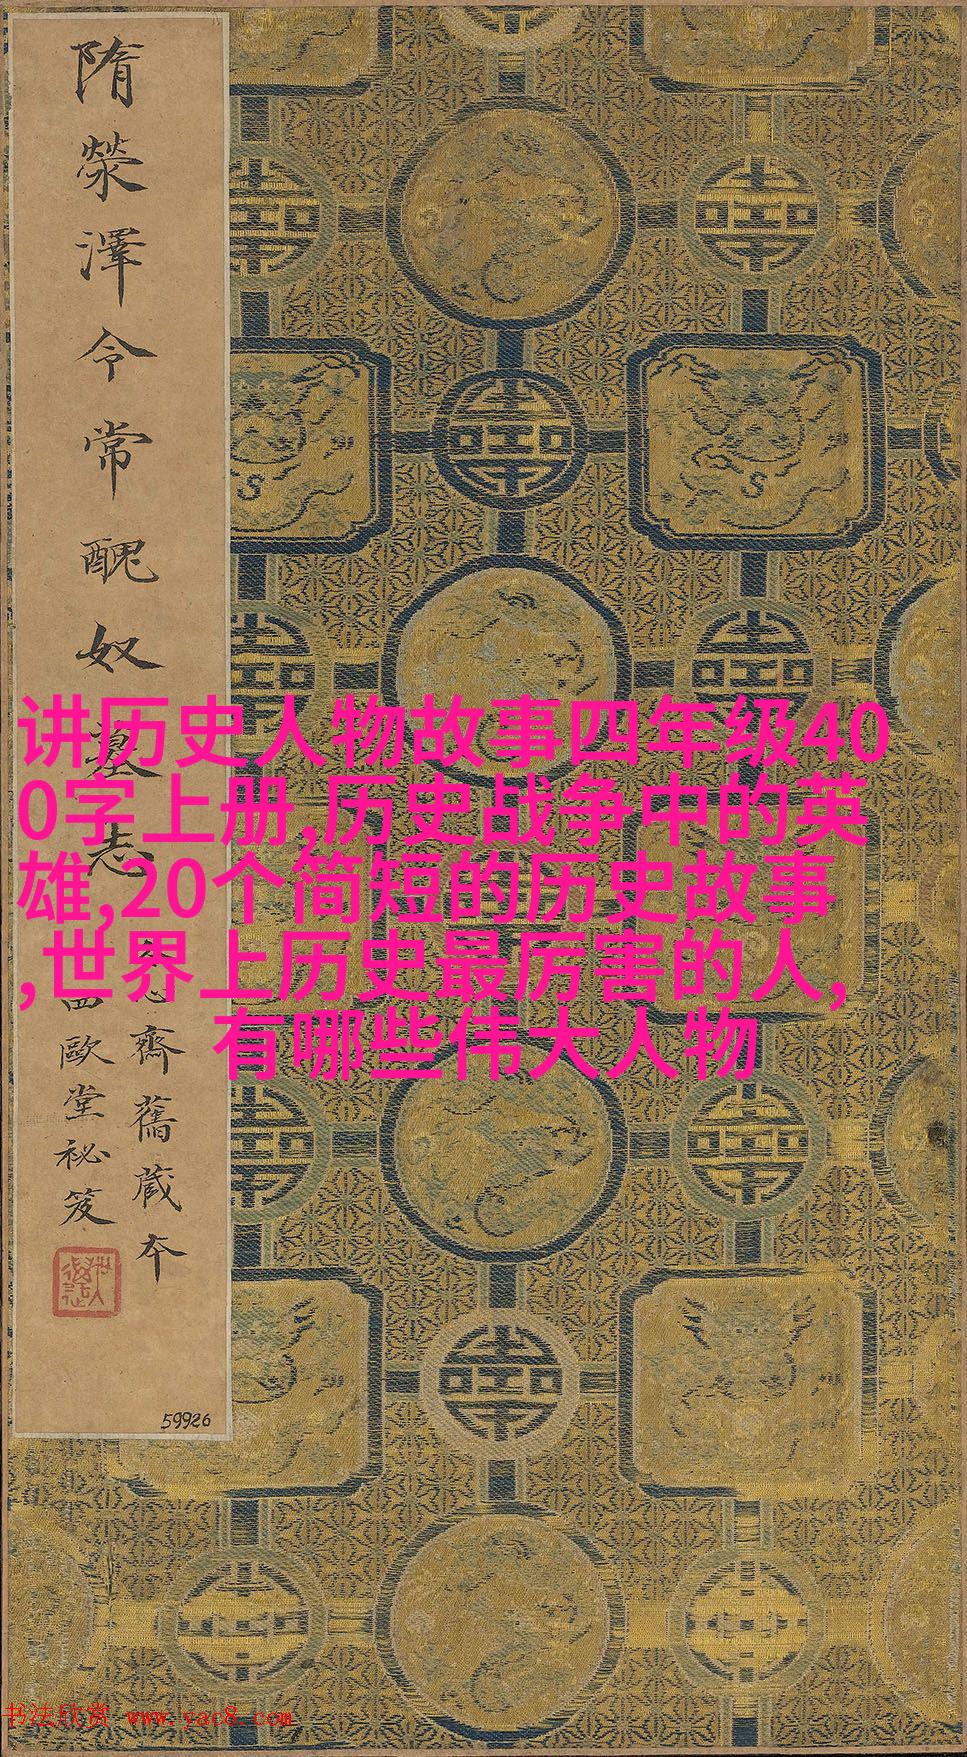 隋滎澤令常醜奴墓志
齋舊藏本
四歐堂祕笈
59926
讲历史人物故事四年级40
0字上册,历史战争中的英
雄,20个简短的历史故事
,世界上历史最厉害的人,
有哪些伟大人物
书法欣赏 www.yac8.com